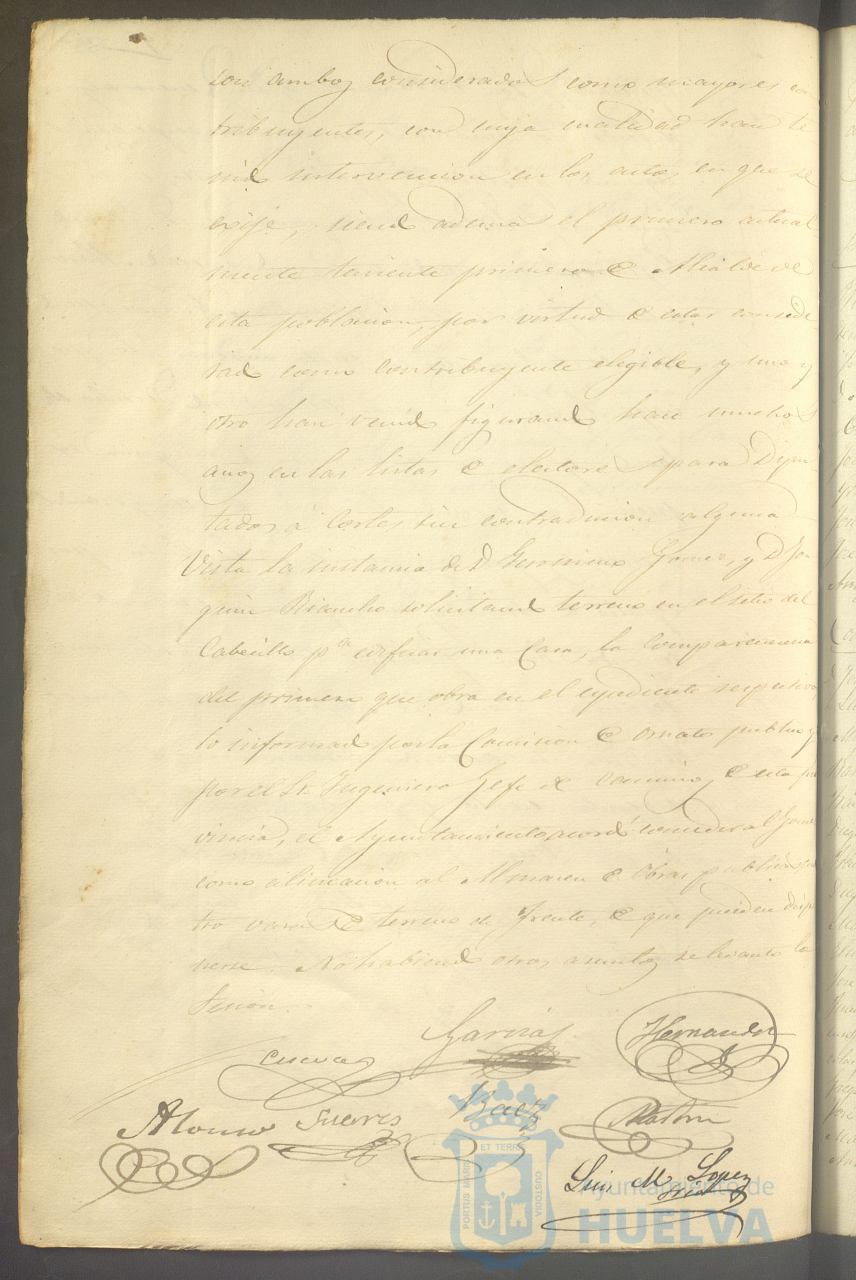 son ambos considerados como mayores con
tribuyentes, con cuya cualidad han te
nido intervencion en los actos en que se
exije, siendo ademas el primero actual
mente teniente primero de Alcalde de
esta poblacion, por virtud de estar conside
rado como contribuyente elegible, y uno y
otro han venido figurando hace muchos
años en las listas de electores para Dipu
tados á Cortes sin contradiccion alguna
Vista la instancia de D. Geronimo Gomez, y D. Joa
quin Riancho solicitando terreno en el sitio del
Cabecillo pª edificar una Casa, la comparecencia
del primero que obra en el espediente respectivo
lo informado por la Comision de Ornato publico y
por el Sr Ingeniero Gefe de caminos de esta pro
vincia, el Ayuntamiento acordó conceder al Gomez
como alineacion al Almacen de Obras publicas
tro varas de terreno de frente, de que pueden dispo
nerse. No habiendo otros asuntos se levanto la
Sesion.
Garcia Hernandez
Cuevas
Alonso Suares Baez Martin
Luis M Lopez
PORTUS MARIS ET TERRAE CUSTODIA
Ayuntamiento de
HUELVA